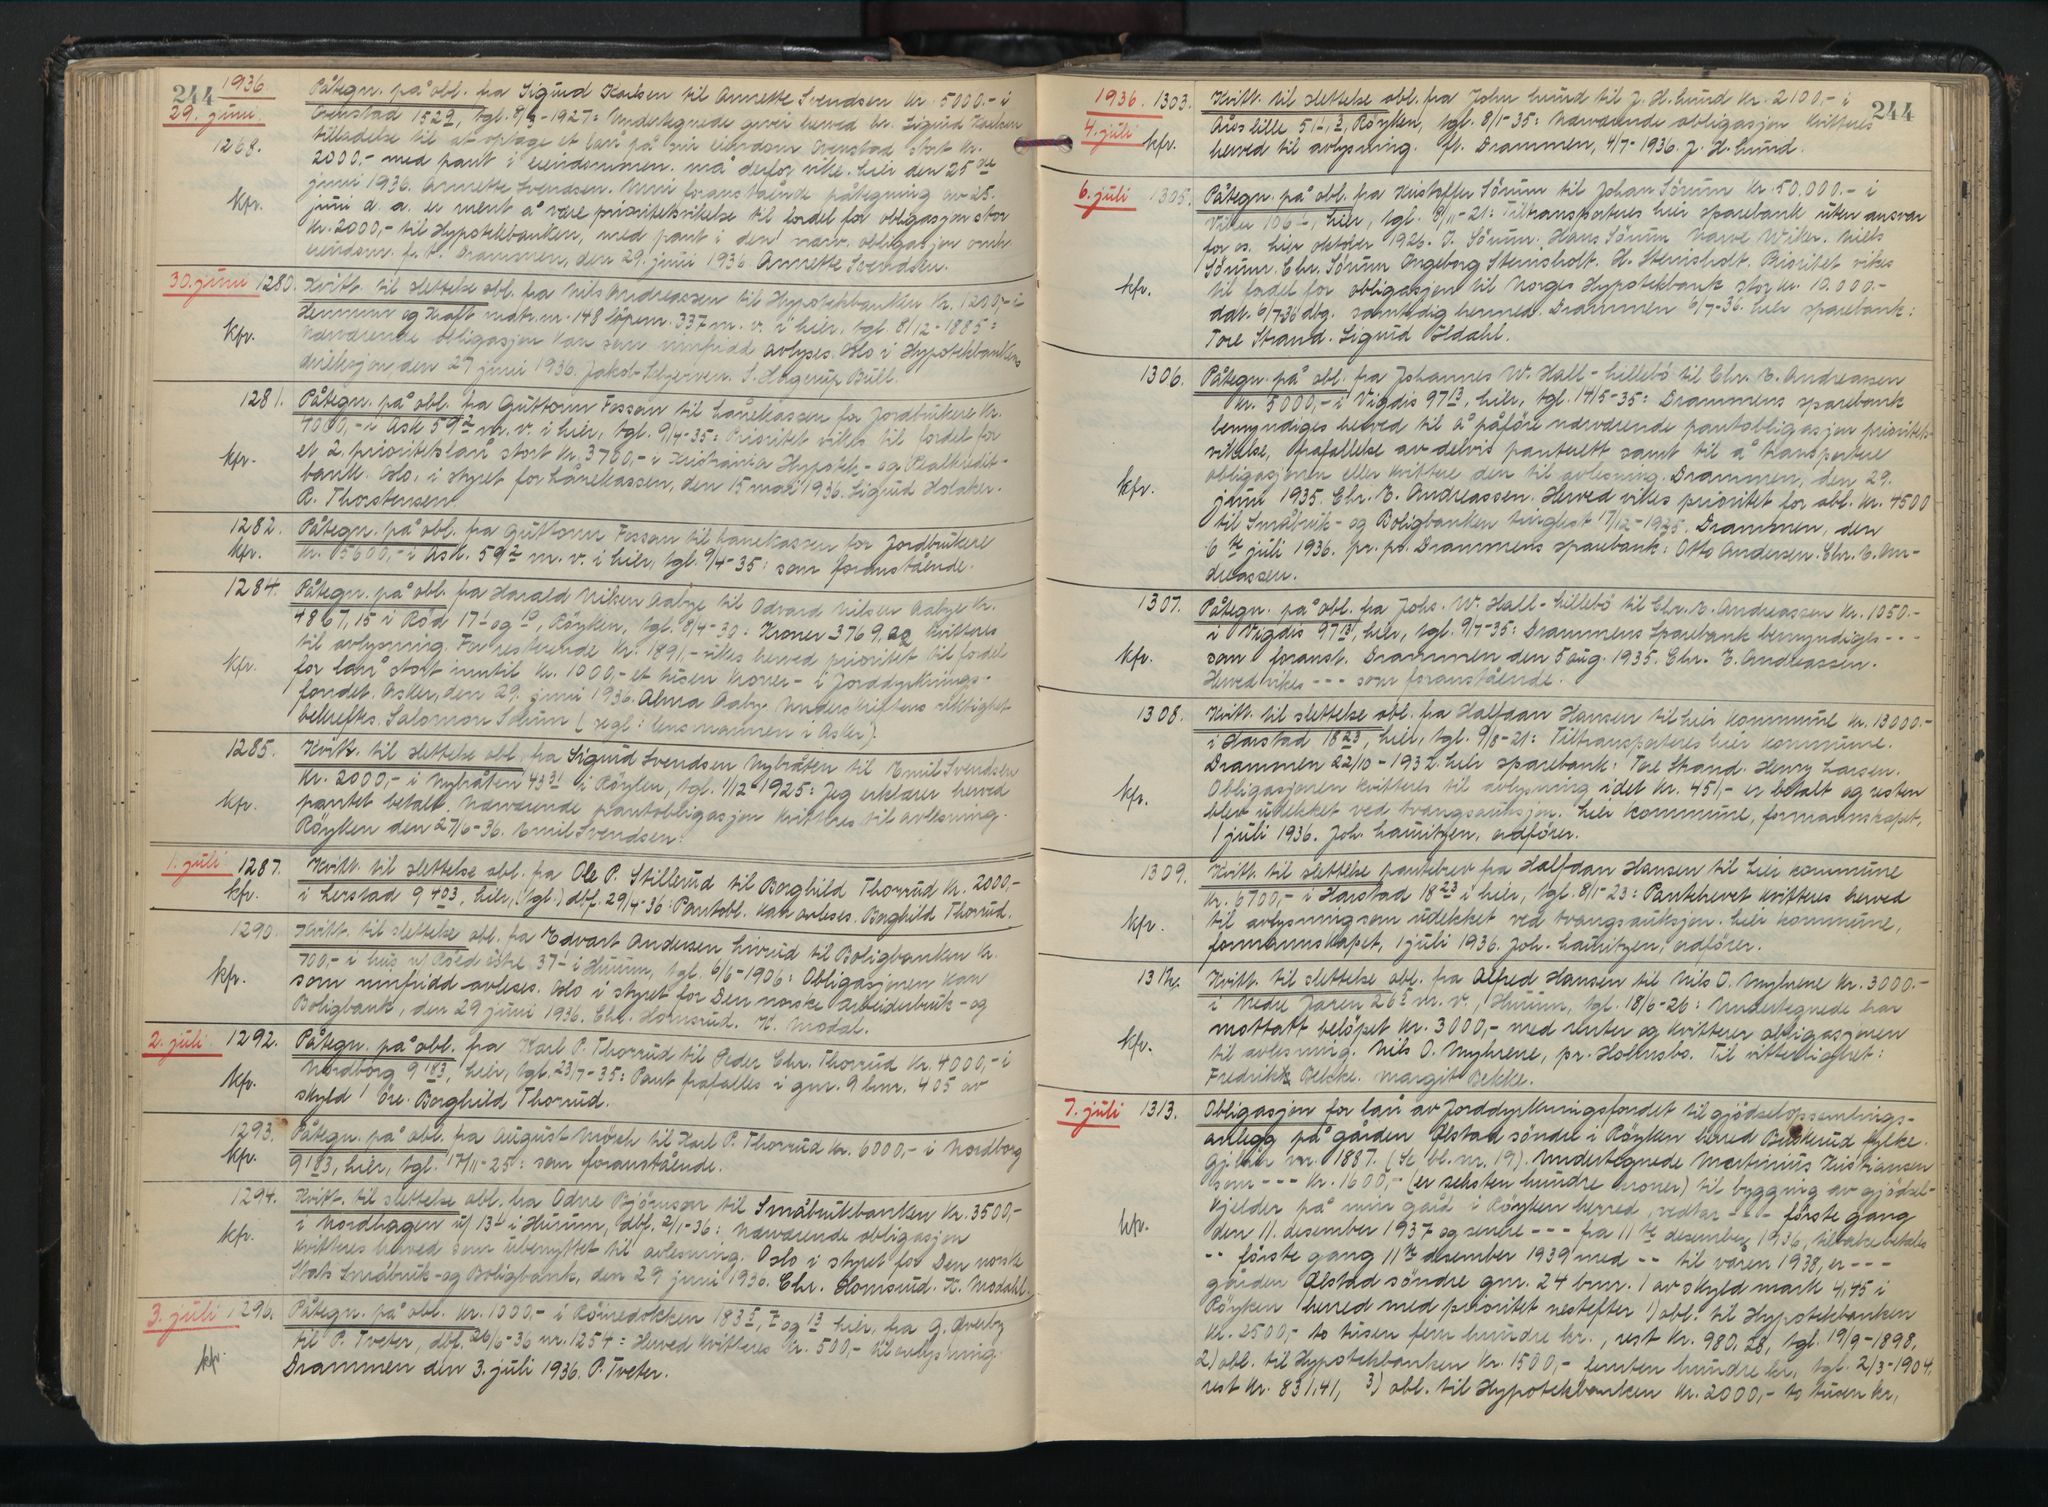 244 1936
29. juni
1268.
kfr.
Påtegn. på obl. fra Sigurd Karlsen til Annette Svendsen kr. 5000.- i
Ovenstad 152, tgl. 1927: Undertegnede gever herved hr. Sigurd Karlsen
tilladelse til at optage et lån på sin eiendom Ovenstad stort kr.
2000,- med pant i eiendommen. må derfor vike. Lier den 25 de
juni 1936. Annette Svendsen. Min foranstående påtegning av 25.
juni d. a. er ment å være prioritetsvikelse til fordel for obligasjon stor
kr. 2000,- til Hypotekbanken, med pant i den i nærv. obligasjon omh.
eiendom. f. t. Drammen, den 29. juni 1936. Annette Svendsen.
30. juni 1280. Kvitt. til slettelse obl. fra Nils Andreassen til Hypotekbanken kr. 1200,- i
kfr. Hemmin og Kraft matr. nr. 148 löpenr. 337 m. v. i Lier. tgl. 8/12-1885:
Nærværende obligasjon kan som innfridd avlyses. Oslo i Hypotekbankens
direksjon, den 27 juni 1936. Jakob Schjerven. S. Hagerup Bull.
1281. Påtegn. på obl. fra Guttorm Fossan til Lånekassen for Jordbrukere kr.
7000,- i Ask 59/2 m. v. i Lier, tgl. 9/4-35: Prioritet vikes til fordel for
kfr. et 2. prioritetslån stort kr. 3700,- i Kristiania Hypotek- og Realkredit-
bank. Oslo, i styret for Lånekassen, den 15 mai 1936. Sigurd Holaker.
R. Thorstensen.
1282. Påtegn. på obl. fra Guttorm Fossan til Lånekassen for Jordbrukere
kfr. kr. 15600,- i Ask. 59/2 m. v. i Lier, tgl. 9/4-35: som foranstående.
1284. Påtegn. på obl. fra Harald Nilsen Aabye til Odvard Nilsen Aabye kr.
4867,15 i Röd 17 og, Röyken, tgl. 8/4-30: Kroner 3769,22 kvitteres
til avlysning. For resterende kr. 1891,- vikes herved prioritet til fordel
kfr. for lån stort inntil kr. 1000,- et tusen kroner- i Jorddyrknings-
fondet. Asker, den 29. juni 1936. Alma Aaby. Underskriftens riktighet
bekreftes. Salomon Schum (segl: lensmannen i Asker).
1285. Kvitt. til slettelse obl. fra Sigurd Svendsen Nybråten til Emil Svendsen
kr. 2000,- i Nybråten 43 i Röyken, tgl. 1/12-1925: Jeg erklærer herved
kfr. pantet betalt. Nærværende pantobligasjon kvitteres til avlesning.
Röyken den 27/6-36. Emil Svendsen.
1. juli 1287. Kvitt. til slettelse obl. fra Ole P. Stillerud til Borghild Thorrud kr. 2000,-
kfr. i Lerstad 9/403, Lier, (tgl.) dbf. 29/4-36: Pantobl. kan avleses. Borghild Thorrud.
1290. Kvitt. til slettelse obl. fra Edvart Andersen Livrud til Boligbanken kr.
700,- i hus u/ Röed östre 37 i Hurum, tgl. 6/6-1906: Obligasjonen kan
kfr. som innfridd avleses. Oslo i styret for Den norske Arbeiderbruk- og
Boligbank, den 29 juni 1936. Chr. Hornsrud. K. Modal.
2. juli. 1292. Påtegn. på obl. fra Karl P. Thorrud til Peder Chr. Thorrud kr. 4000,- i
kfr. Nordborg 9/183, Lier, tgl. 23/7-35: Pant frafalles i gnr. 9 bnr. 405 av
skyld 1 öre. Borghild Thorrud.
1293. Påtegn. på obl. fra August Mörch til Karl P. Thorrud kr. 6000,- i Nordborg
kfr. 9/183, Lier, tgl. 17/11-25: som foranstående.
1294. Kvitt. til slettelse obl. fra Odne Björnson til Småbrukbanken kr. 3500,-
i Nordhagen u/ 13 i Hurum, dbf. 2/1-36: Nærværende obligasjon
kfr. kvitteres herved som ubenyttet til avlesning. Oslo i styret for Den norske
Stats Småbruk- og Boligbank, den 29 juni 1936. Chr. Hornsrud. K. Modahl.
3. juli 1296. Påtegn. på obl. kr. 1000,- i Röinedokken 183 og 13 Lier, fra G. Överby
kfr. til P. Tveter, dbf. 26/6-36 nr. 1254: Herved kvitteres kr. 500,- til avlysning.
Drammen den 3. juli 1936. P. Tveter.
1936. 1303. Kvitt. til slettelse obl. fra John Lund til J. H. Lund kr. 2100,- i 244
4. juli kfr. Åroslille 51, Röyken, tgl. 8/1-35: Nærværende obligasjon kvitteres
herved til avlysning. p.t. Drammen, 4/7-1936. J. H. Lund.
6. juli 1305. Påtegn. på obl. fra Kristoffer Sörum til Johan Sörum kr. 50.000.- i
Viker 106, Lier, tgl. 8/11-21: Tiltransporteres Lier sparebank uten ansvar
for os. Lier oktober 1926. J. Sörum. Hans Sörum. Narve Wiker. Niels
Sörum. Chr. Sörum. Ingeborg Stensholt. H. Stensholt. Prioritet vikes
kfr. til fordel for obligasjon til Norges Hypotekbank stor kr. 10.000.-
dat. 6/7-36 dbg. samtidig hermed. Drammen 6/7-36. Lier sparebank:
Tore Strand. Sigurd Öldahl.
1306. Påtegn. på obl. fra Johannes W. Hall-Lillebö til Chr. E. Andreassen
kr. 5000,- i Vigdis 97/13, Lier, tgl. 14/5-35: Drammens sparebank
bemyndiges herved til å påföre nærværende pantobligasjon prioritets-
vikelse, frafallelse av delvis panterett samt til å transportere
obligasjonen eller kvittere den til avlesning. Drammen, den 29.
kfr. juni 1935. Chr. E. Andreassen. Herved vikes prioritet for obl. kr. 4500
til Småbruk- og Boligbanken tinglest 17/12-1925. Drammen, den
6 te juli 1936. pr. pr. Drammens sparebank: Otto Andersen. Chr. E. An-
dreassen.
1307. Påtegn. på obl. fra Johs. W. Hall-Lillebö til Chr. E. Andreassen kr. 1050-
i Vigdis 97/13, Lier, tgl. 9/7-35: Drammens Sparebank bemyndiges ---
kfr. som foranst. Drammen den 5 aug. 1935. Chr. E. Andreassen.
Herved vikes --- som foranstående.
1308. Kvitt. til slettelse obl. fra Halfdan Hansen til Lier kommune kr. 13000.-
i Harstad 18/23, Lier, tgl. 9/8-21: Tiltransporteres Lier kommune.
Drammen 22/10-1932. Lier sparebank: Tore Strand. Henry Larsen.
kfr. Obligasjonen kvitteres til avlysning idet kr. 451,- er betalt og resten
blev udekket ved tvangsauksjon. Lier kommune, formannskapet,
1 juli 1936. Joh. Lauritzen, ordförer.
1309. Kvitt. til slettelse pantebrev fra Halfdan Hansen til Lier kommune
kr. 6700,- i Harstad 18/23 i Lier, tgl. 8/1-23: Pantebrevet kvitteres herved
kfr. til avlysning som udekket ved tvangsauksjon. Lier kommune,
formannskapet, 1 juli 1936. Joh. Lauritzen, ordförer.
1312. Kvitt. til slettelse obl. fra Alfred Hansen til Nils O. Myhrene kr. 3000.-
i Nedre Jaren 26 m. v., Hurum, tgl. 18/6-26: Undertegnede har
kfr. mottatt belöpet kr. 3000,- med renter og kvitterer obligasjonen
til avlesning. Nils O. Myhrene, pr. Holmsbo. Til vitterlighet:
Fredrikk Bekke. Margit Bekke.
7. juli 1313. Obligasjon for lån av Jorddyrkningsfondet til gjödselopsamlings-
anlegg på gården Ölstad söndre i Röyken herred Buskerud fylke.
Gjelder nr. 1887. (Se bl. nr. 19). Undertegnede Martinius Kristiansen
som --- kr. 1600,- (er seksten hundre kroner) til bygging av gjödsel-
kjelder på min gård i Röyken herred, vedtar --- förste gang
kfr. den 11. desember 1937 og senere --- fra 11te desember 1936, tilbakebetales
-- förste gang 11te desember 1939 med -- til våren 1938, er ---
gården Ölstad söndre gnr. 24 bnr. 1 av skyld mark 4,45 i
Röyken herred med prioritet nestefter 1) obl. til Hypotekbanken
kr. 2500,- to tusen fem hundre kr., rest kr. 980,28, tgl. 19/9-1898,
2) obl. til Hypotekbanken kr. 1500,- femten hundre kr., tgl. 2/3-1904,
rest kr. 831,41, 3) obl. til Hypotekbanken kr. 2000,- to tusen kr.,